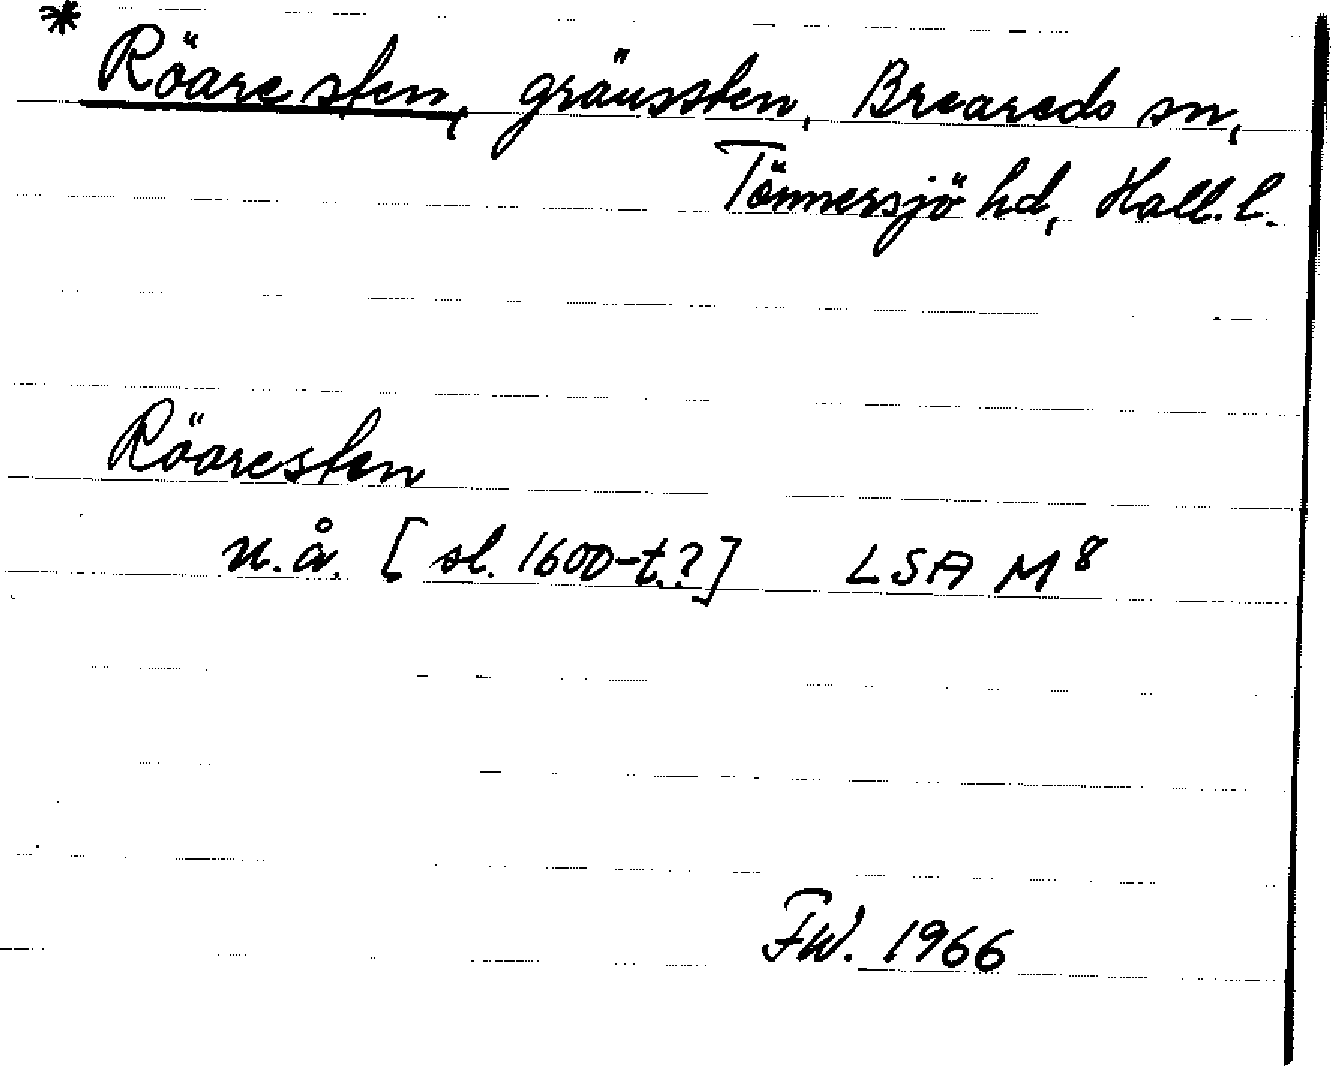 * Röaresten, gränssten, Breareds sn,
Tönnersjö hd, Hall. l.
Röaresten
u.å. [sl. 1600-t.?] LSA M 8
FW. 1966